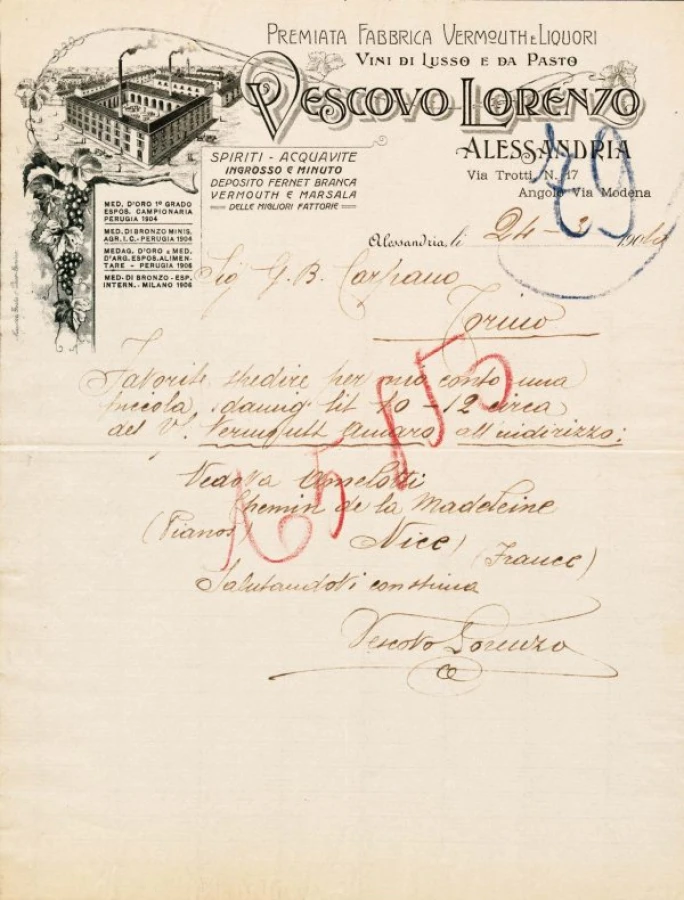 PREMIATA FABBRICA VERMOUTH E LIQUORI
VINI DI LUSSO E DA PASTO
VESCOVO LORENZO
ALESSANDRIA
Via Trotti N. 17
Angolo Via Modena
SPIRITI - ACQUAVITE
INGROSSO E MINUTO
DEPOSITO FERNET BRANCA
VERMOUTH E MARSALA
DELLE MIGLIORI FATTORIE
MED. D'ORO 1º GRADO
ESPOS. CAMPIONARIA
PERUGIA 1904
MED. DI BRONZO MINIS.
AGR. I. C. - PERUGIA 1904
MEDAG. D'ORO E MED.
D'ARG. ESPOS. ALIMEN-
TARE - PERUGIA 1906
MED. DI BRONZO - ESP.
INTERN. - MILANO 1906
79
Alessandria, li 24 - 3 190
Sig G. B. Carpano
Torino
Favorite spedire per mio conto una
piccola damig lit 10 - 12 circa
del V. Vermoutt Amaro all'indirizzo:
Vedova Amelotti
Chemin de la Madeleine
(Piano) Nice) (France)
Salutandovi con stima
Vescovo Lorenzo